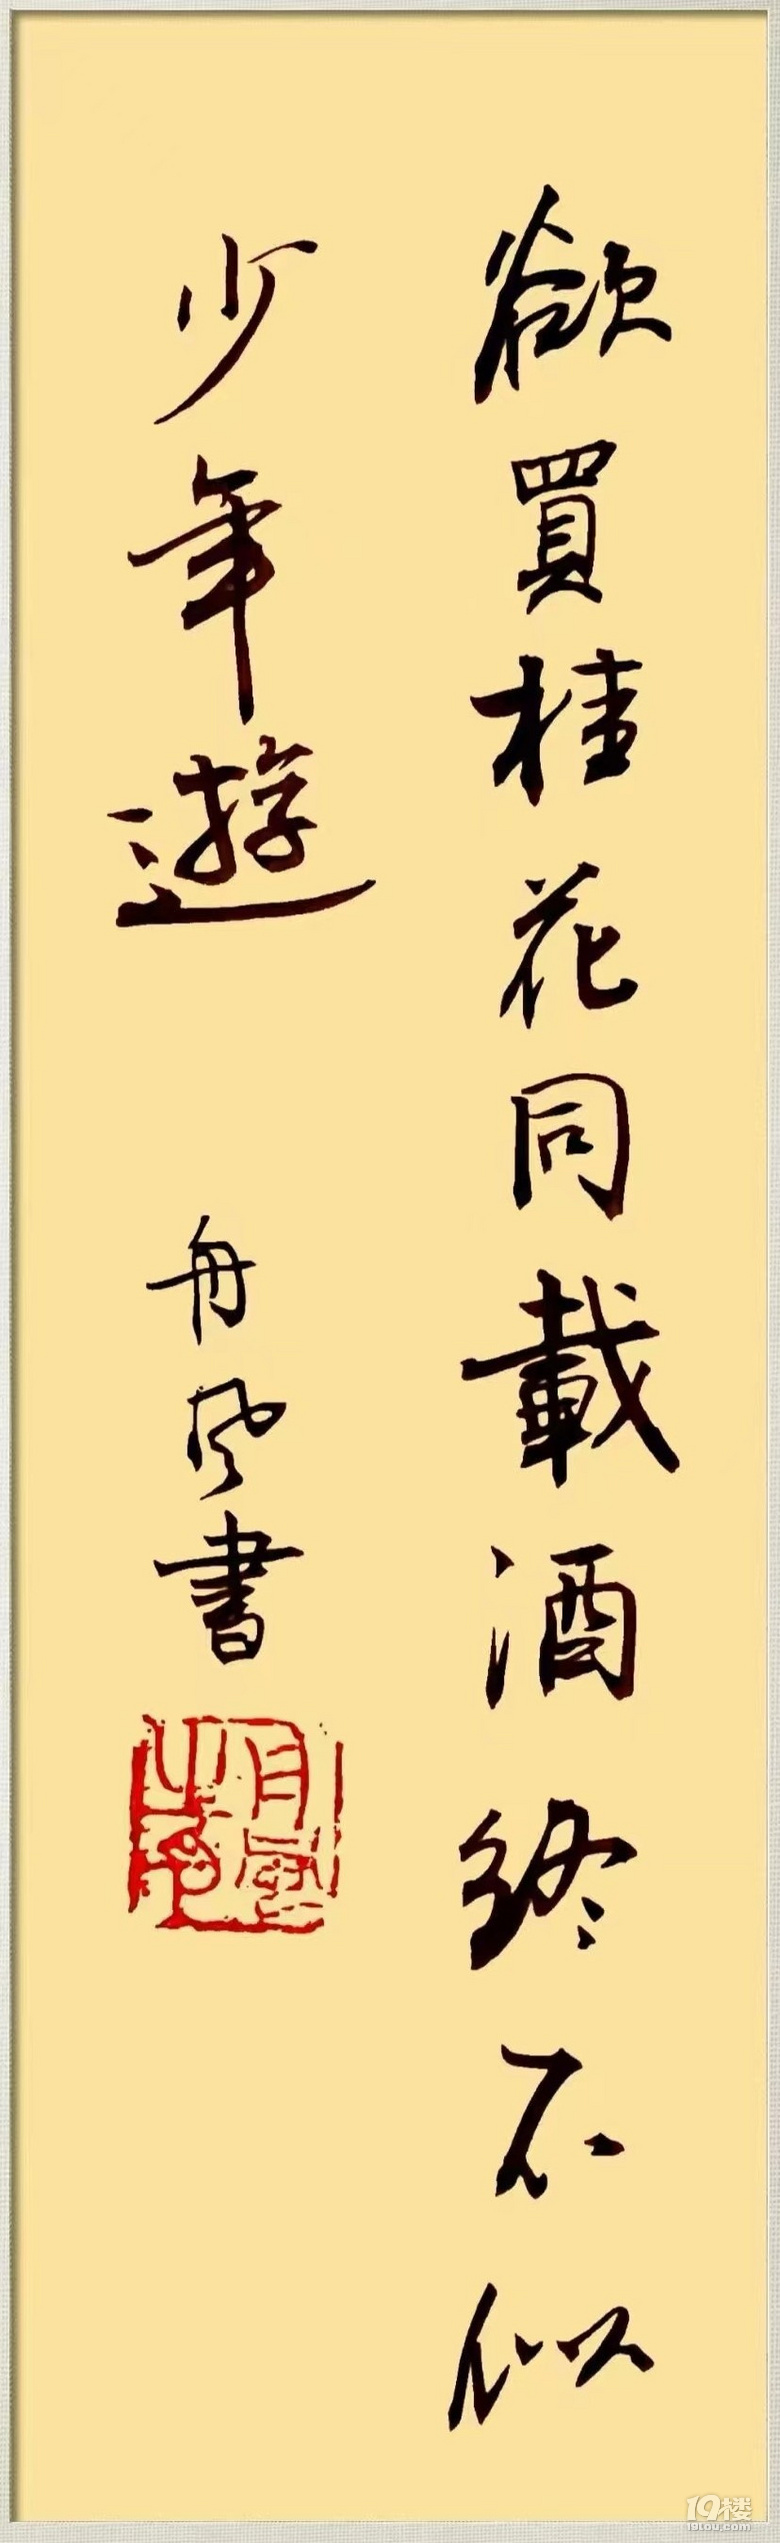 欲買桂花同載酒終不似
少年遊
舟风書
19楼
19lou.com